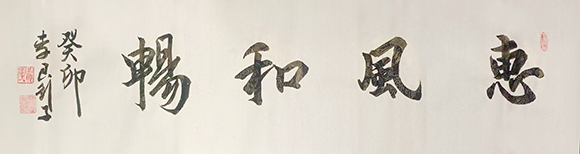 惠風和暢
癸卯